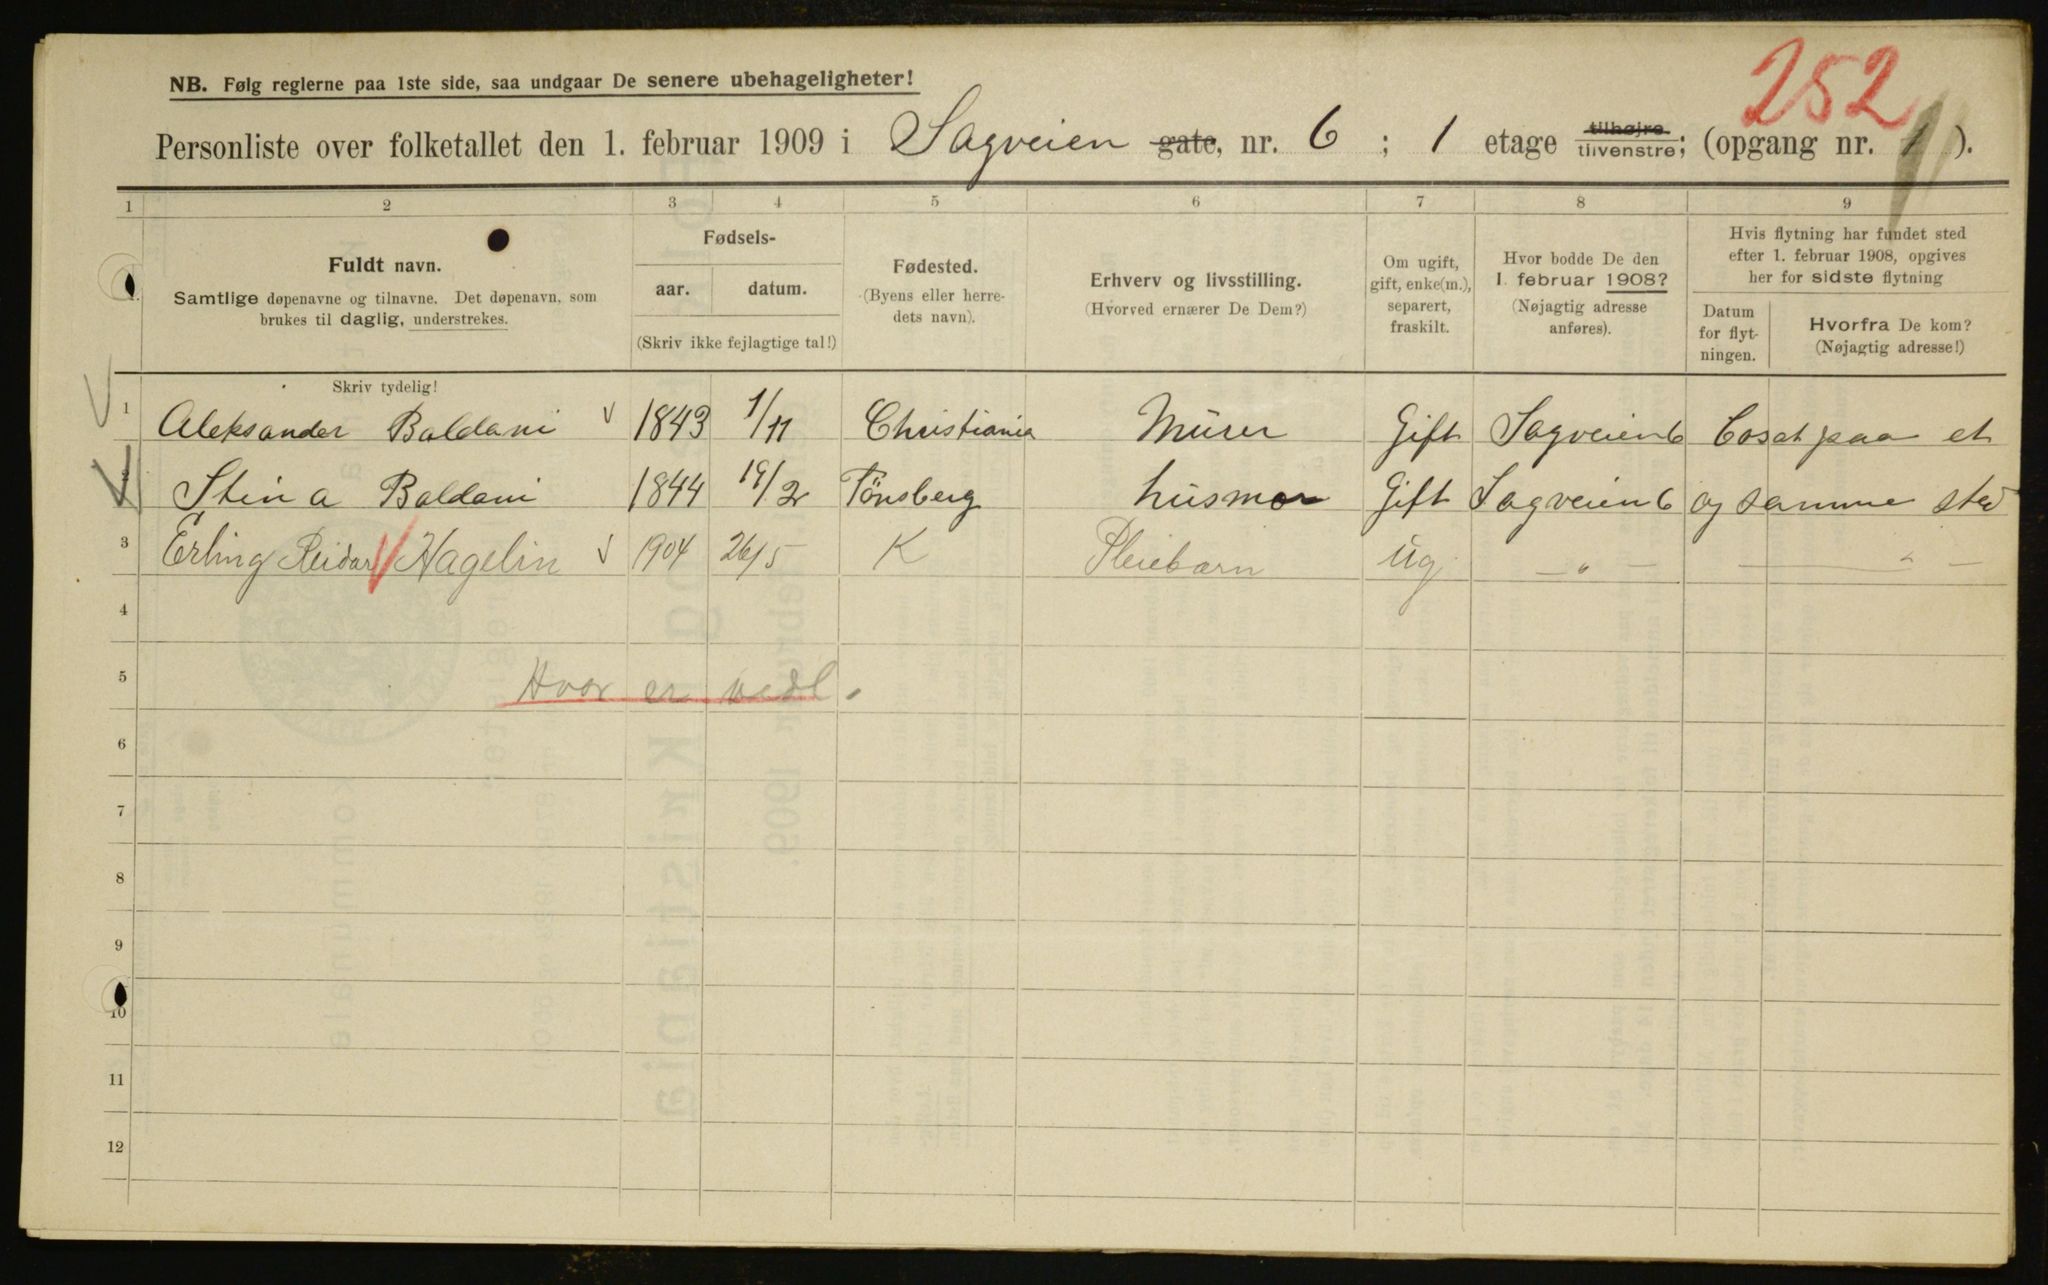 252
NB. Følg reglerne paa 1ste side, saa undgaar De senere ubehageligheter!
Personliste over folketallet den 1. februar 1909 i Sagveien gate, nr. 6 ; 1 etage tilhøjre tilvenstre; (opgang nr. 1 ).
1 2 3 4 5 6 7 8 9
Fuldt navn.
Samtlige døpenavne og tilnavne. Det døpenavn, som
brukes til daglig, understrekes.
Fødsels-
aar. datum.
(Skriv ikke fejlagtige tal!)
Fødested.
(Byens eller herre-
dets navn).
Erhverv og livsstilling.
(Hvorved ernærer De Dem?)
Om ugift,
gift, enke(m.),
separert,
fraskilt.
Hvor bodde De den
1. februar 1908?
(Nøjagtig adresse
anføres).
Hvis flytning har fundet sted
efter 1. februar 1908, opgives
her for sidste flytning
Datum
for flyt-
ningen.
Hvorfra De kom?
(Nøjagtig adresse!)
Skriv tydelig!
1 Aleksander Baldani 1843 1/11 Christiania Murer Gift Sagveien 6 Bosat paa et
2 Stina Baldani 1844 19/2 Tönsberg husmor Gift Sagveien 6 og samme sted
3 Erling Reidar Hagelin 1904 26/5 K Pleiebarn ug — " — — " —
4
5 Hvor er vedl.
6
7
8
9
10
11
12